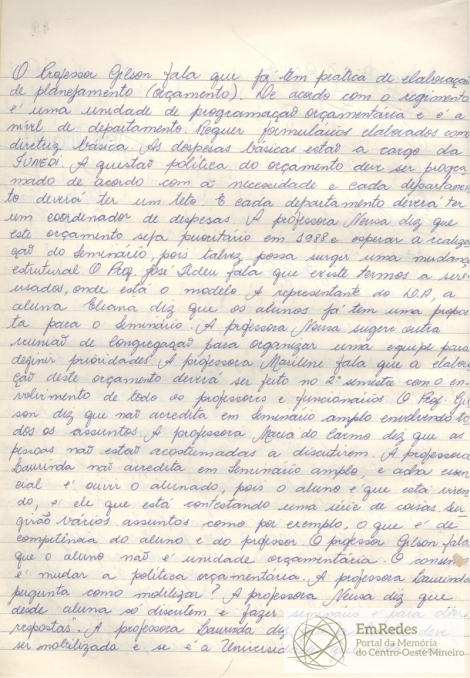 O Professor Gilson fala que já tem prática de elaboração
de planejamento (orçamento). De acordo com o regimento
é uma unidade de programação orçamentária e é a
nível de departamento. Requer formulários elaborados com
diretriz básica. As despesas básicas estão a cargo da
FUNEDI. A questão política do orçamento deve ser progra
mado de acordo com as necessidade e cada departamen
to deverá ter um teto. E cada departamento deverá ter
um coordenador de despesas. A professora Neusa diz que
este orçamento seja prioritário em 1988 e esperar a realiza
ção do Seminário, pois talvez possa surgir uma mudança
estrutural. O Prof. José Adeu fala que existe termos a serem
usados, onde está o modelo. A representante do D.A, a
aluna Eliana diz que os alunos já tem uma propos
ta para o Seminário. A professora Neusa sugere outra
reunião de Congregação para organizar uma equipe para
definir prioridades. A professora Marilene fala que a elabora
ção deste orçamento deverá ser feito no 2º semestre com o en
volvimento de todo os professores e funcionários. O Prof. Gil
son diz que não acredita em Seminário amplo envolvendo to
dos os assuntos. A professora Maria do Carmo diz que as
pessoas não estão acostumadas a discutirem. A professora
Laurinda não acredita em Seminário amplo, e acha essen
cial é ouvir o alunado, pois o aluno é que está viven
do, é ele que está contestando uma série de coisas. Ser
girão vários assuntos como por exemplo, o que é de
competência do aluno e do professor. O professor Gilson fala
que o aluno não é unidade orçamentária. O consenso
é mudar a política orçamentária. A professora Laurinda
pergunta como mobilizar? A professora Neusa diz que
desde aluna só discutem e fazer seminário é para obter
respostas". A professora Laurinda diz
ser mobilizada e se é a
EmRedes
Portal da Memória
do Centro-Oeste Mineiro